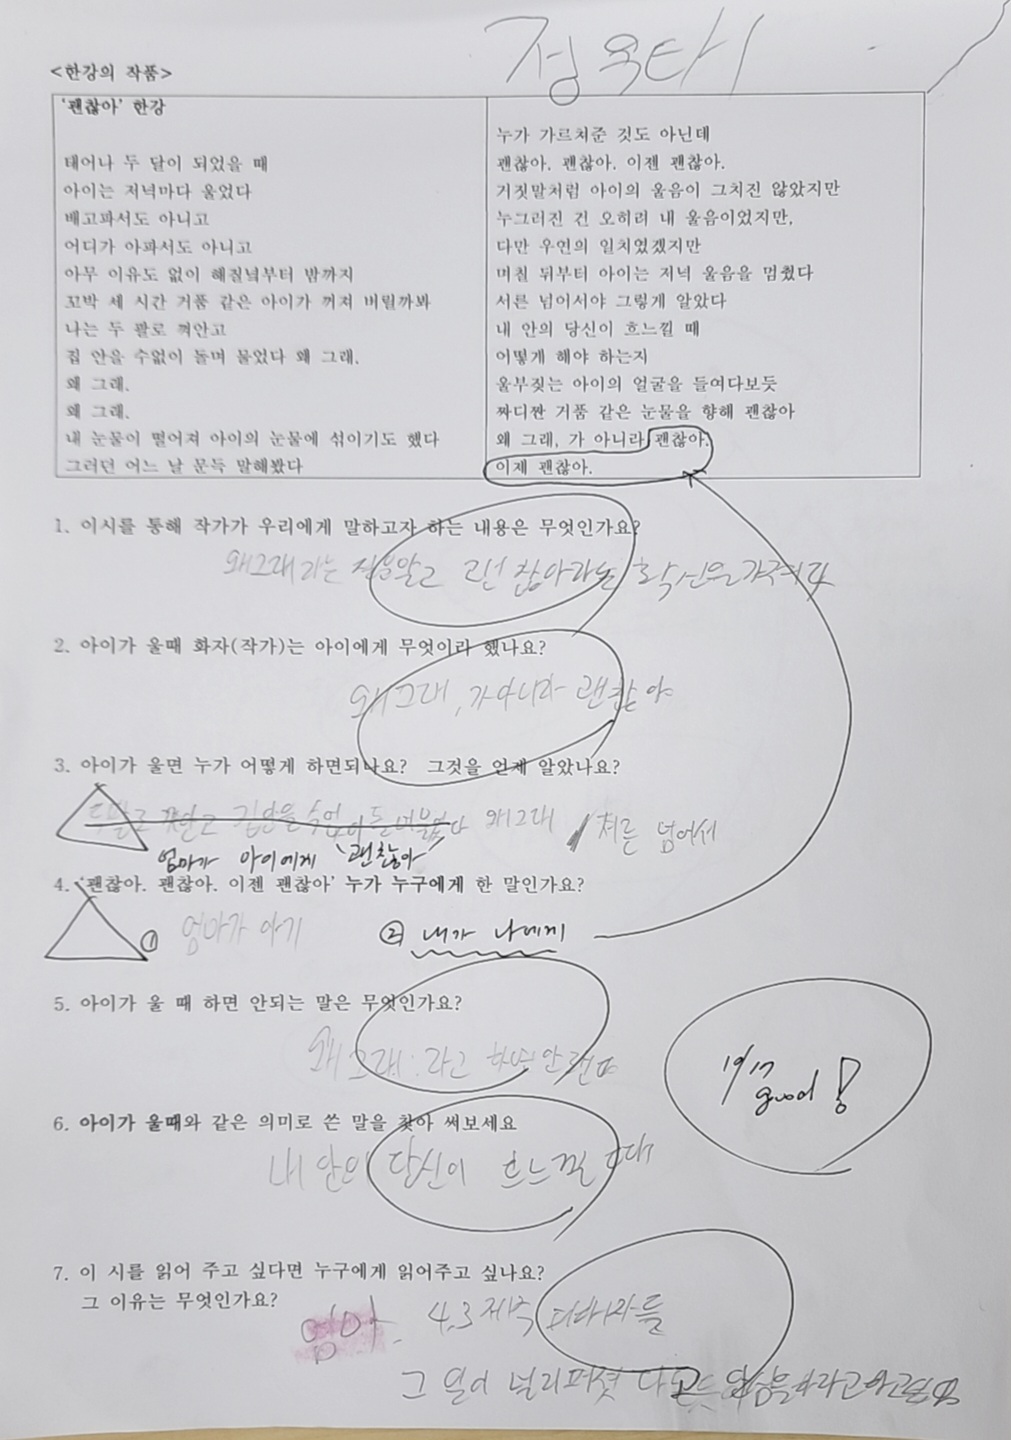 정옥타
<한강의 작품>
'괜찮아' 한강
태어나 두 달이 되었을 때
아이는 저녁마다 울었다
배고파서도 아니고
어디가 아파서도 아니고
아무 이유도 없이 해질녘부터 밤까지
꼬박 세 시간 거품 같은 아이가 꺼져 버릴까봐
나는 두 팔로 껴안고
집 안을 수없이 돌며 물었다 왜 그래.
왜 그래.
왜 그래.
내 눈물이 떨어져 아이의 눈물에 섞이기도 했다
그러던 어느 날 문득 말해봤다
누가 가르쳐준 것도 아닌데
괜찮아. 괜찮아. 이젠 괜찮아.
거짓말처럼 아이의 울음이 그치진 않았지만
누그러진 건 오히려 내 울음이었지만,
다만 우연의 일치였겠지만
며칠 뒤부터 아이는 저녁 울음을 멈췄다
서른 넘어서야 그렇게 알았다
내 안의 당신이 흐느낄 때
어떻게 해야 하는지
울부짖는 아이의 얼굴을 들여다보듯
짜디짠 거품 같은 눈물을 향해 괜찮아
왜 그래, 가 아니라 괜찮아.
이제 괜찮아.
1. 이시를 통해 작가가 우리에게 말하고자 하는 내용은 무엇인가요?
왜그래 라는 괜찮아라는 확신을
2. 아이가 울때 화자(작가)는 아이에게 무엇이라 했나요?
왜그래, 가아니라 괜찮아
3. 아이가 울면 누가 어떻게 하면되나요? 그것을 언제 알았나요?
두팔로 껴안고 왜그래 / 처른 넘어서
엄마가 아이에게 "괜찮아"
4. '괜찮아. 괜찮아. 이젠 괜찮아' 누가 누구에게 한 말인가요?
① 엄마가 아기 ② 내가 나에게
5. 아이가 울 때 하면 안되는 말은 무엇인가요?
왜 그래. 라고 하면안된다
10/17
good!
6. 아이가 울때와 같은 의미로 쓴 말을 찾아 써보세요
내 안의 당신이 흐느낄 때
7. 이 시를 읽어 주고 싶다면 누구에게 읽어주고 싶나요?
그 이유는 무엇인가요?
엄마. 4.3 제주 피해자들
그 일이 널리퍼졋